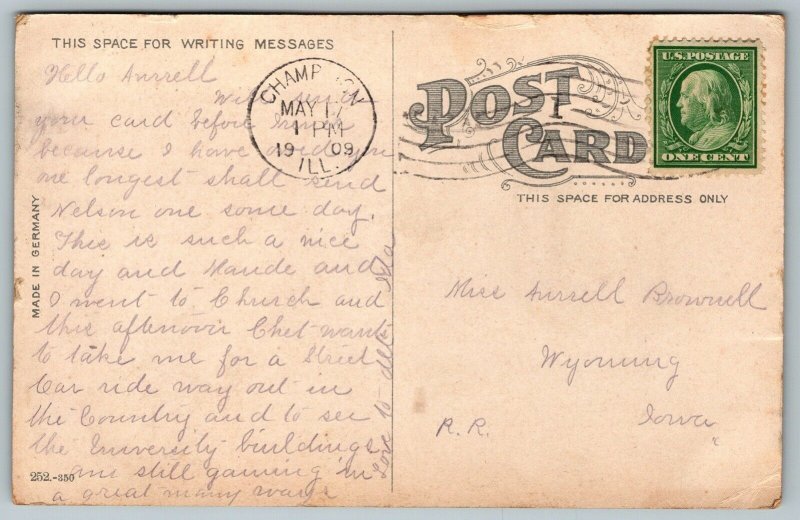 THIS SPACE FOR WRITING MESSAGES
Hello Aurrell
Will send
your card before
because I have owed you
one longest shall send
Nelson one some day.
This is such a nice
day and Maude and
I went to Church and
this afternoon Chet wants
to take me for a Street
Car ride way out in
the Country and to see
the University buildings
am still gaining in
a great many ways
Love to all
MADE IN GERMANY
252.-350
CHAMPAIGN
MAY 17
1 PM
1909
ILL.
POST CARD
U.S. POSTAGE
ONE CENT
THIS SPACE FOR ADDRESS ONLY
Miss Aurrell Brownell
Wyoming
Iowa
R. R.